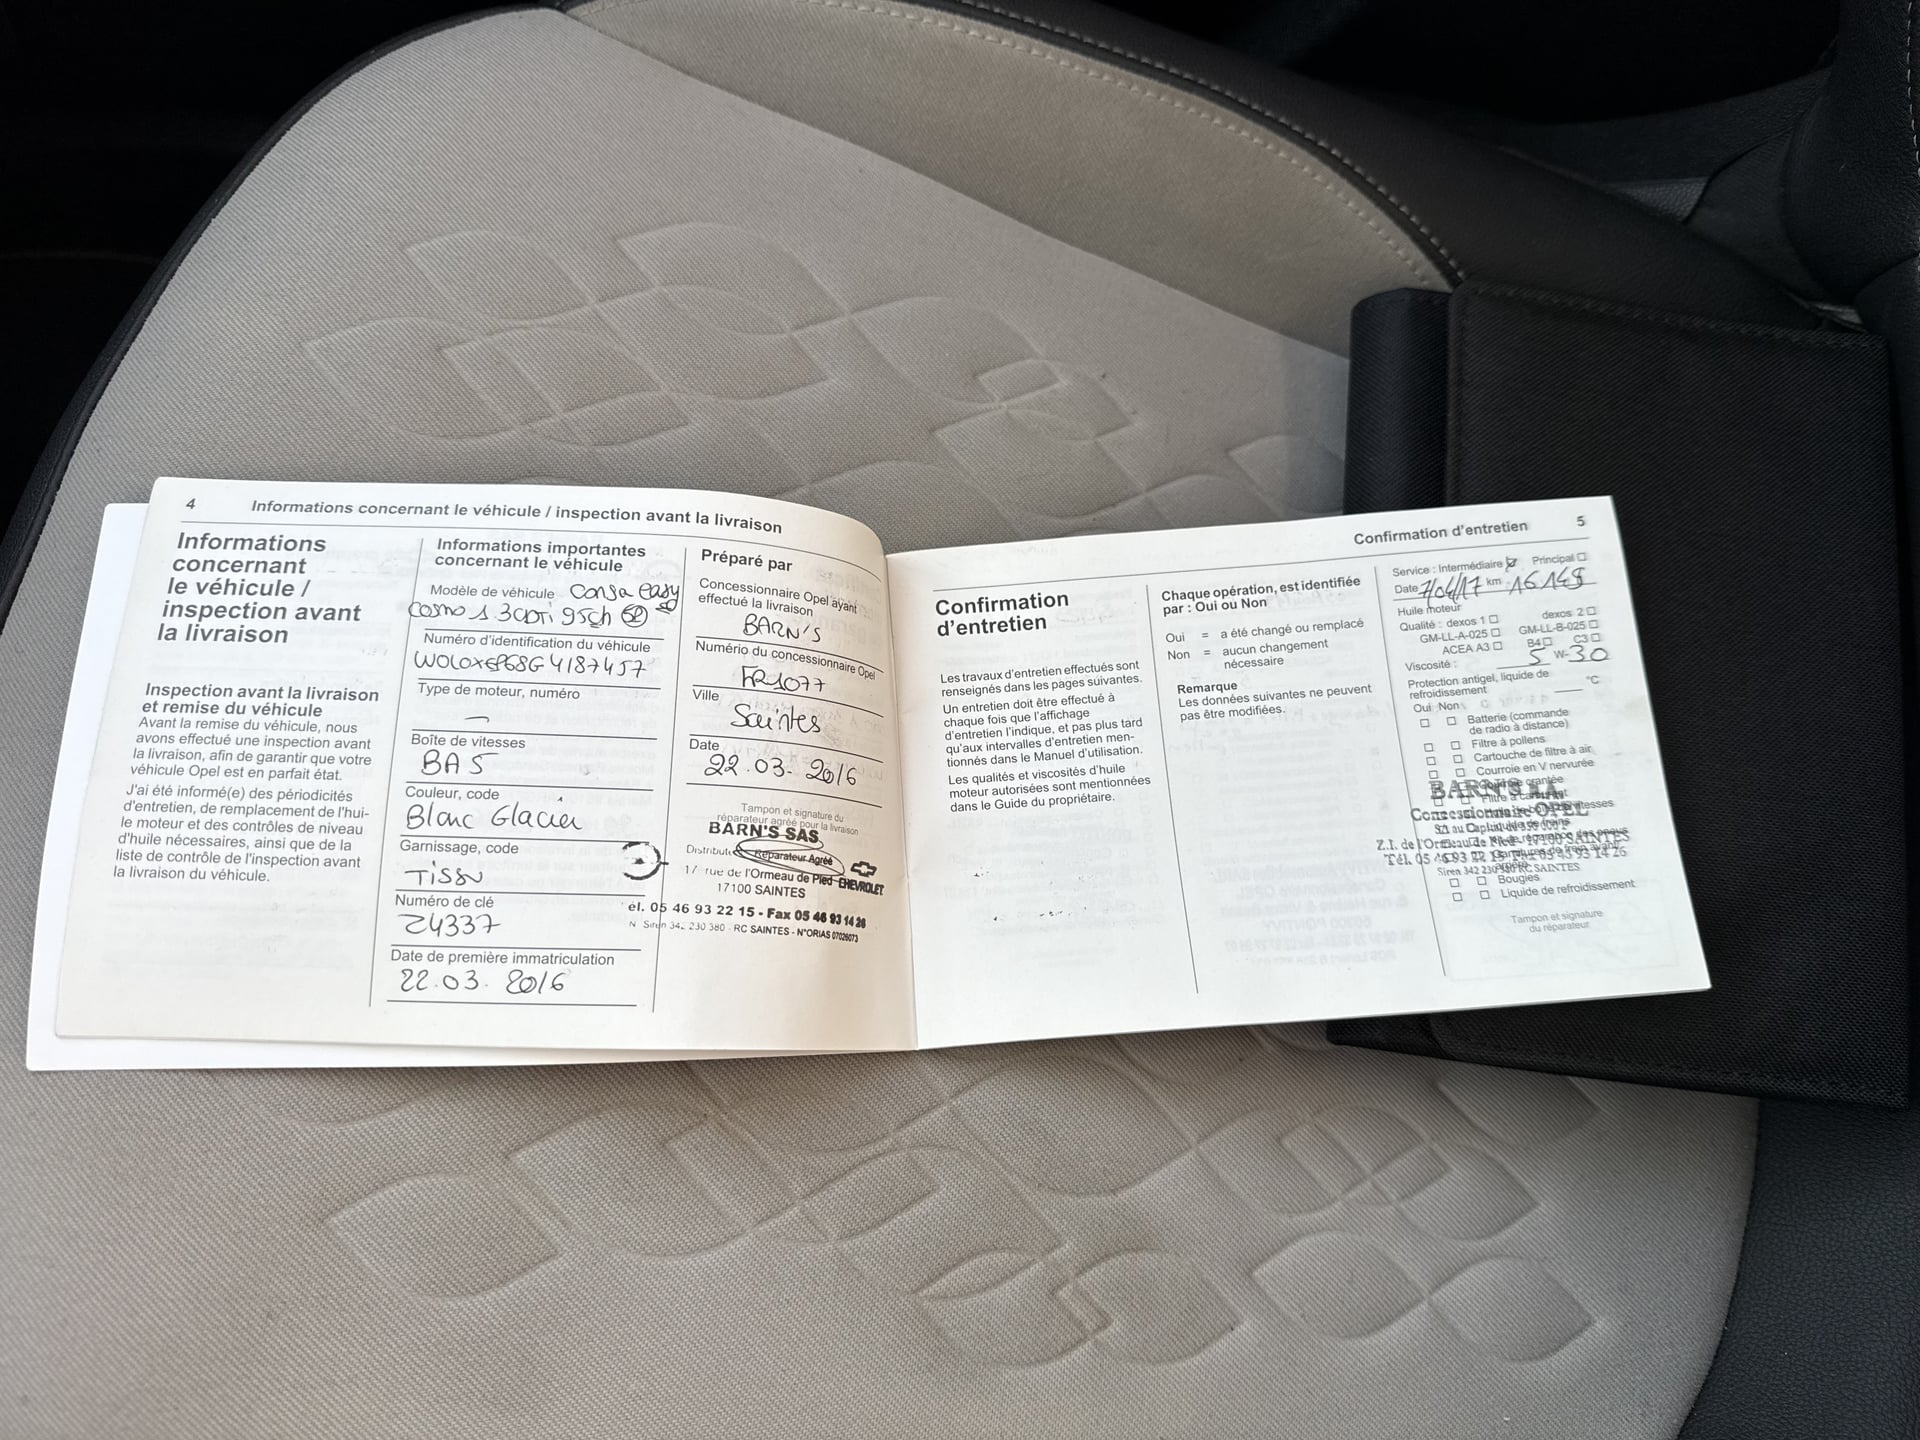 4 Informations concernant le véhicule / inspection avant la livraison
Informations
concernant
le véhicule /
inspection avant
la livraison
Inspection avant la livraison
et remise du véhicule
Avant la remise du véhicule, nous
avons effectué une inspection avant
la livraison, afin de garantir que votre
véhicule Opel est en parfait état.
J'ai été informé(e) des périodicités
d'entretien, de remplacement de l'hui-
le moteur et des contrôles de niveau
d'huile nécessaires, ainsi que de la
liste de contrôle de l'inspection avant
la livraison du véhicule.
Informations importantes
concernant le véhicule
Modèle de véhicule Corsa easy
cosmo 1.3CDTi 95ch
Numéro d'identification du véhicule
Type de moteur, numéro
—
Boîte de vitesses
BA5
Couleur, code
Blanc Glacier
Garnissage, code
Tissu
Numéro de clé
Z4337
Date de première immatriculation
22.03.2016
Préparé par
Concessionnaire Opel ayant
effectué la livraison
BARN'S
Numério du concessionnaire Opel
FR1077
Ville
Saintes
Date
22.03-2016
Tampon et signature du
réparateur agréé pour la livraison
BARN'S SAS
Réparateur Agréé
17 rue de l'Ormeau de Pied CHEVROLET
17100 SAINTES
él. 05 46 93 22 15 - Fax 05 46 93 14 26
N Siren 342 230 380 - RC SAINTES - N°ORIAS 07026073
Confirmation d'entretien 5
Confirmation
d'entretien
Les travaux d'entretien effectués sont
renseignés dans les pages suivantes.
Un entretien doit être effectué à
chaque fois que l'affichage
d'entretien l'indique, et pas plus tard
qu'aux intervalles d'entretien men-
tionnés dans le Manuel d'utilisation.
Les qualités et viscosités d'huile
moteur autorisées sont mentionnées
dans le Guide du propriétaire.
Chaque opération, est identifiée
par : Oui ou Non
Oui = a été changé ou remplacé
Non = aucun changement
nécessaire
Remarque
Les données suivantes ne peuvent
pas être modifiées.
Service : Intermédiaire Principal
Date 7/04/17 km
Huile moteur
Qualité : dexos 1 dexos 2
GM-LL-A-025 GM-LL-B-025
ACEA A3 B4 C3
Viscosité : 5 W-30
Protection antigel, liquide de
refroidissement °C
Oui Non
Batterie (commande
de radio à distance)
Filtre à pollens
Cartouche de filtre à air
Courroie en V nervurée
BARN'S SA
Concessionnaire OPEL
Z.I. de l'Ormeau de Pied - 17100 SAINTES
Tél. 05 46 93 22 15 - Fax 05 46 93 14 26
Siren 342 230 380 RC SAINTES
Bougies
Liquide de refroidissement
Tampon et signature
du réparateur